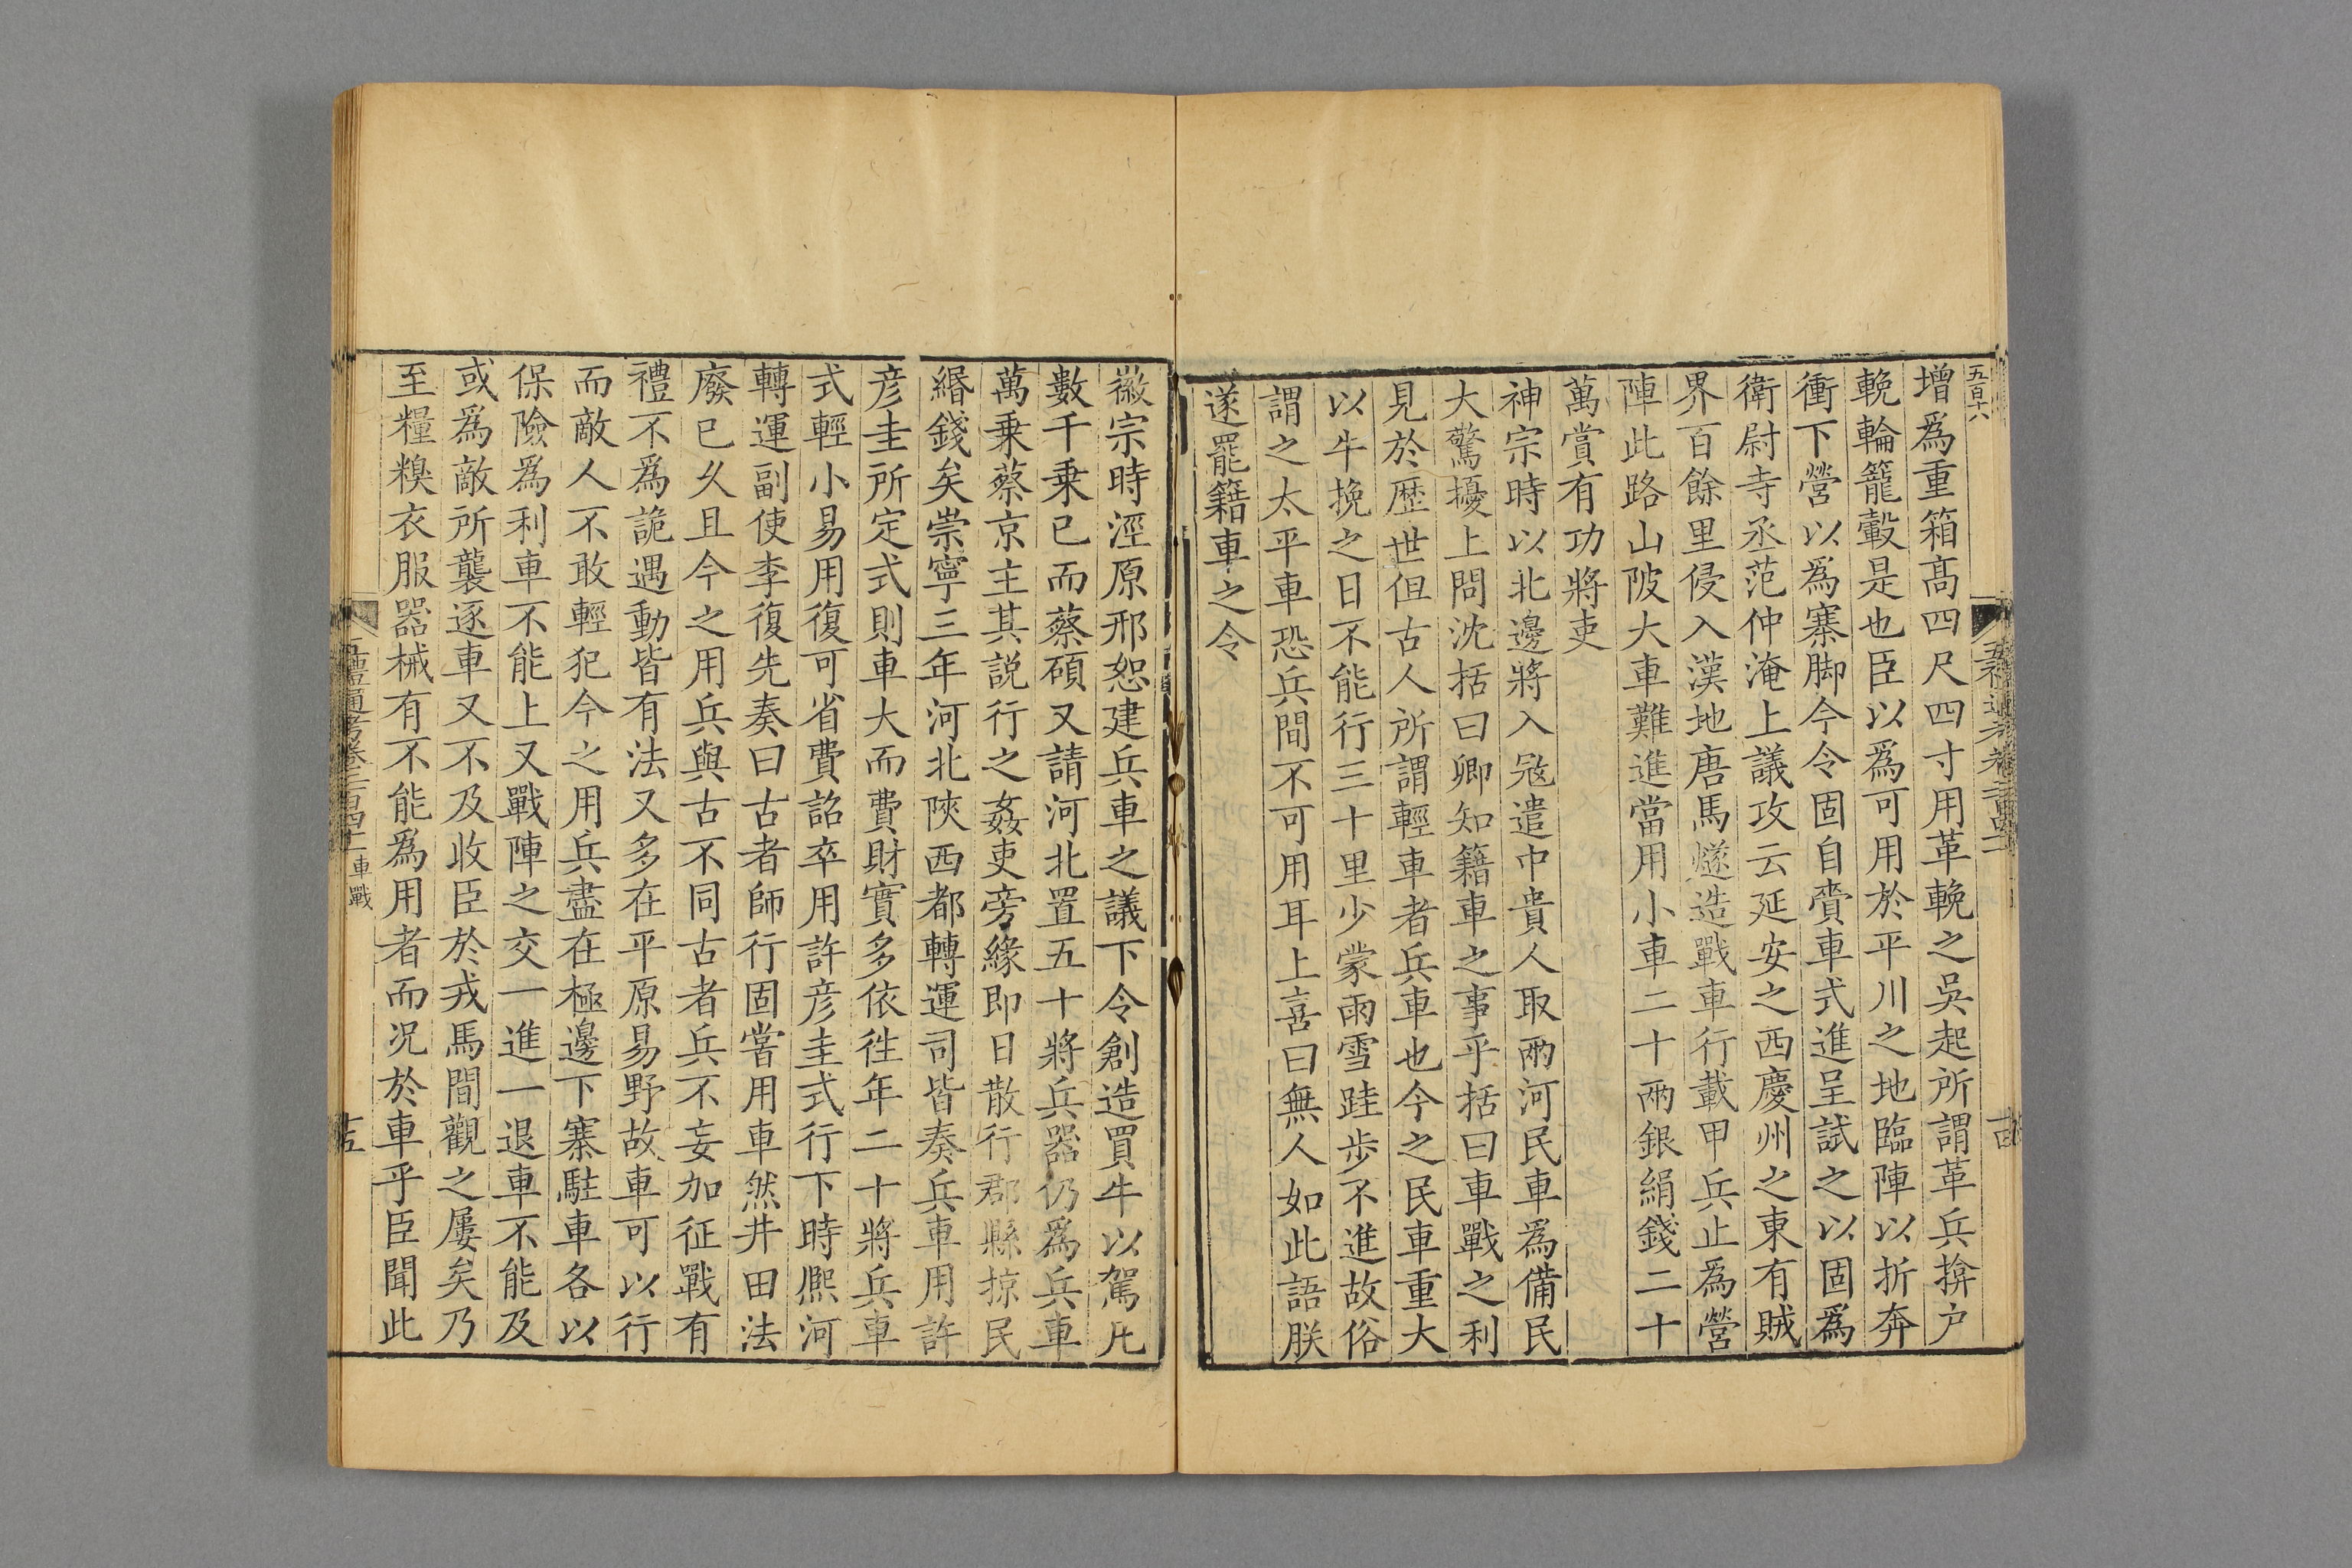 五百十六
增爲重箱髙四尺四寸用革輓之吳起所謂革兵揜户
輓輪籠轂是也臣以爲可用於平川之地臨陣以折奔
衝下營以爲寨脚今令固自賫車式進呈試之以固爲
衛尉寺丞范仲淹上議攻云延安之西慶州之東有賊
界百餘里侵入漢地唐馬燧造戰車行載甲兵止爲營
陣此路山陂大車難進當用小車二十兩銀絹錢二十
萬賞有功將吏
神宗時以北邊將入冦遣中貴人取兩河民車爲備民
大驚擾上問沈括曰卿知籍車之事乎括曰車戰之利
見於歷世但古人所謂輕車者兵車也今之民車重大
以牛挽之日不能行三十里少蒙雨雪跬步不進故俗
謂之太平車恐兵間不可用耳上喜曰無人如此語朕
遂罷籍車之令
徽宗時涇原邢恕建兵車之議下令創造買牛以駕凡
數千乗已而蔡碩又請河北置五十將兵器仍爲兵車
萬乗蔡京主其説行之姦吏旁緣即日散行郡縣掠民
緡錢矣崇寧三年河北陜西都轉運司皆奏兵車用許
彦圭所定式則車大而費財實多依徃年二十將兵車
式輕小易用復可省費詔卒用許彦圭式行下時熙河
轉運副使李復先奏曰古者師行固嘗用車然井田法
廢已乆且今之用兵與古不同古者兵不妄加征戰有
禮不爲詭遇動皆有法又多在平原易野故車可以行
而敵人不敢輕犯今之用兵盡在極邊下寨駐車各以
保險爲利車不能上又戰陣之交一進一退車不能及
或爲敵所襲逐車又不及收臣於戎馬間觀之屢矣乃
至糧糗衣服器械有不能爲用者而况於車乎臣聞此
五禮通考卷二百四十一 車戰